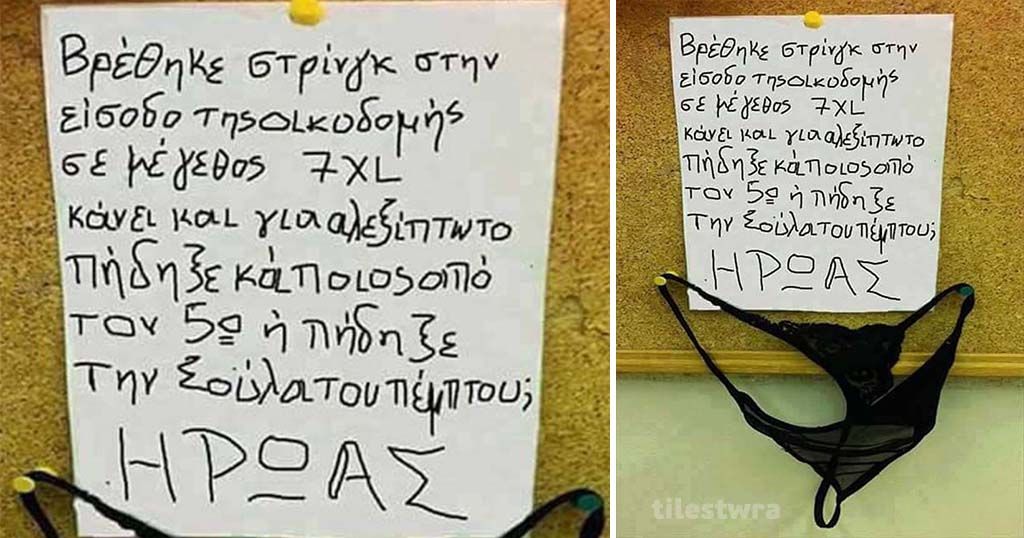 Βρέθηκε στρίνγκ στην
είσοδο της οικοδομής
σε μέγεθος 7XL
κάνει και για αλεξίπτωτο
πήδηξε κάποιος από
τον 5º ή πήδηξε
την Σούλα του πέμπτου;
ΗΡΩΑΣ
Βρέθηκε στρίνγκ στην
είσοδο της οικοδομής
σε μέγεθος 7XL
κάνει και για αλεξίπτωτο
πήδηξε κάποιος από
τον 5º ή πήδηξε
την Σούλα του πέμπτου;
ΗΡΩΑΣ
tilestwra